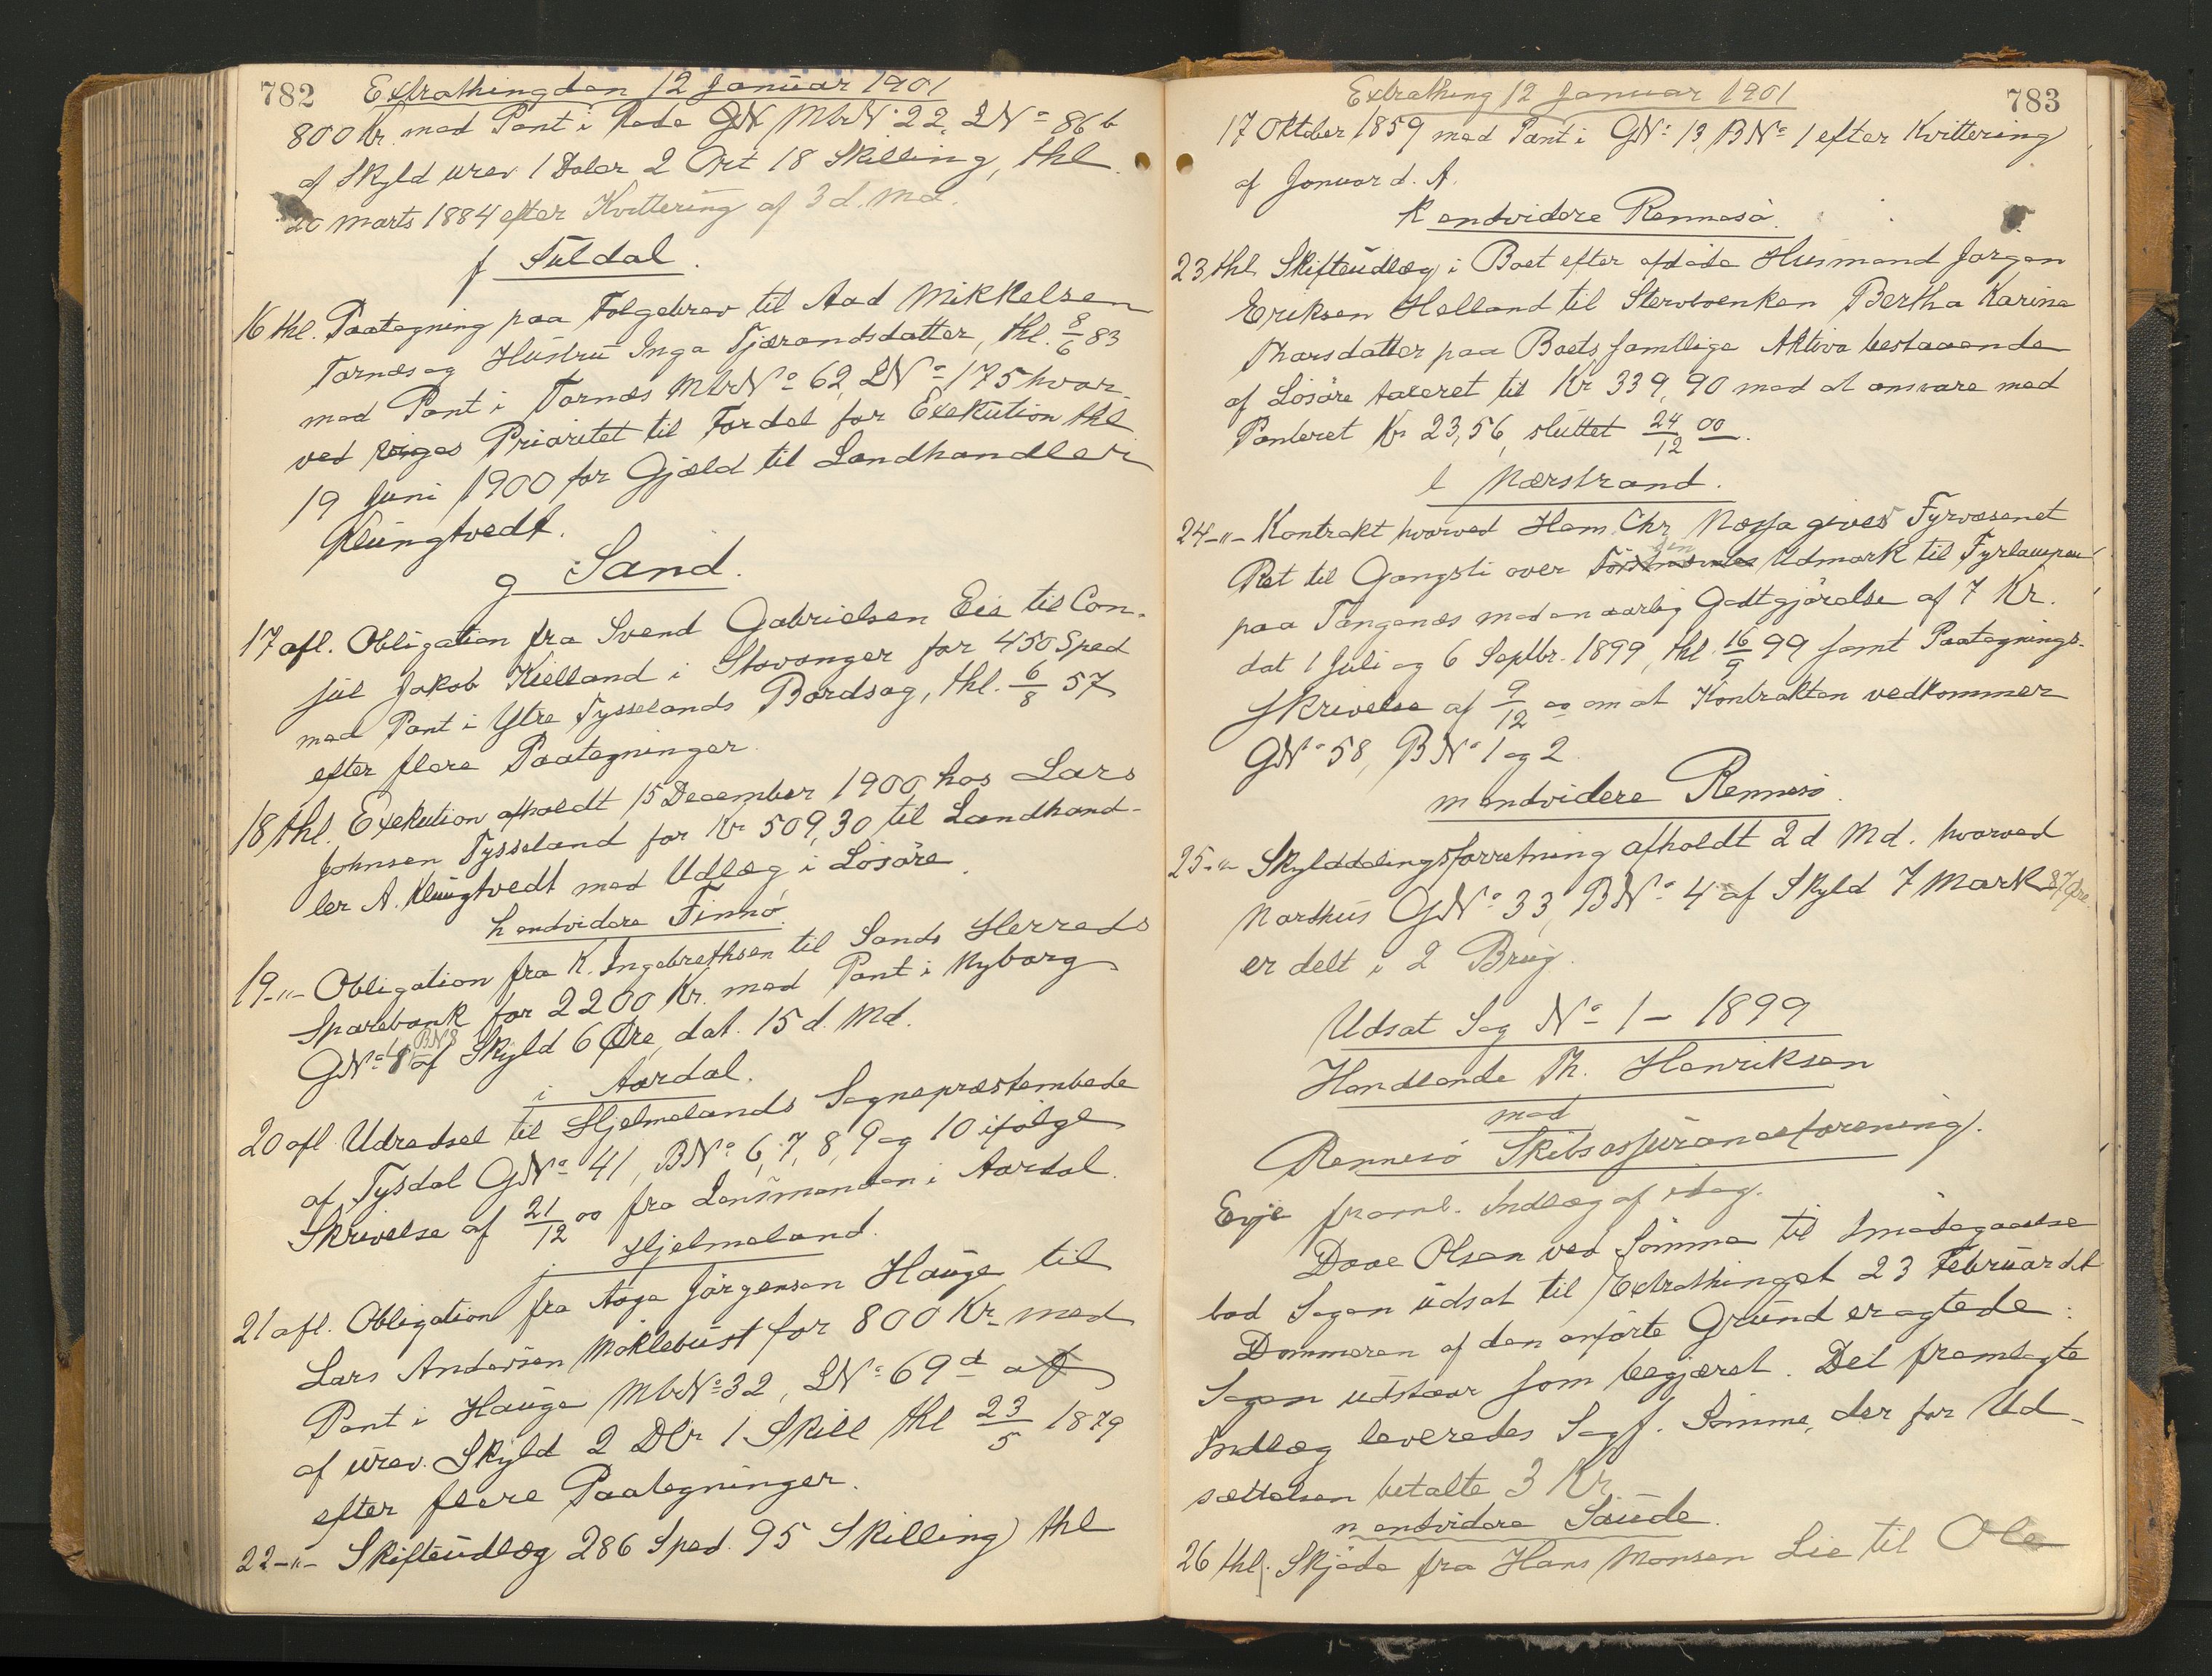 782 Extrathing den 12 Januar 1901
800 Kr. med Pant i Rade GN MbrN: 22, LNo 86 b
af Skyld urev 1 Daler 2 Ort 18 Skilling, thl.
20 Marts 1884 efter Kvittering af 3 d. Md.
f Suldal.
16 thl. Paategning paa Folgebrev til Aad Mikkelsen
Tornæs og Hustru Inga Tjærandsdatter, thl. 8/6 83
med Pant i Tornæs MbrNo 62, LNo 175 hvor-
ved viges Prioritet til Fordel for Exekution thl
19 Juni 1900 for Gjæld til Landhandler
Klungtvedt.
g Sand.
17 afl. Obligation fra Svend Gabrielsen Eie til Con-
sul Jakob Kielland i Stavanger for 450 Sped
med Pant i Ytre Tysselands Bordsag, thl. 6/8 57
efter flere Paategninger.
18 thl. Exekution afholdt 15 December 1900 hos Lars
Johnsen Tysseland for Kr 509,30 til Landhand-
ler A. Klungtvedt med Udlæg i Lösöre.
h endvidere Finnö.
19 -"- Obligation fra K. Ingebrethsen til Sands Herreds
Sparebank for 2200 Kr. med Pant i Nyborg
GNo BN 8 af Skyld 6 Øre, dat. 15 d. Md.
i Aardal.
20 afl Udredsel til Hjelmelands Sognepræstembede
af Tysdal GNo 41, BNo 6, 7, 8, 9 og 10 ifölge
Skrivelse af 21/12 00 fra Lensmanden i Aardal.
j Hjelmeland.
21 afl. Obligation fra Aage Jörgensen Hauge til
Lars Andersen Möklebust for 800 Kr. med
Pant i Hauge MbrNo 32, LNo 69 d af
af urev. Skyld 2 Dlr 1 Skill thl 23/5 1879
efter flere Paategninger.
22 -"- Skifteudlæg 286 Sped. 95 Skilling thl
Extrathing 12 Januar 1901 783
17 Oktober 1859 med Pant i GNo 13, BNo 1 efter Kvittering
af Januar d. A.
k endvidere Rennesö.
23 thl Skifteudlæg i Boet efter afdöde Husmand Jörgen
Eriksen Helland til Stervboenken Bertha Karine
Thorsdatter paa Boets samtlige Aktiva bestaaende
af Lösöre taxeret til Kr 339,90 mod at ansvare med
Panteret Kr 23,56, sluttet 24/12 00.
l Nærstrand.
24 -"- Kontrakt hvorved Ham. Chr. Næsse giver Fyrvæsenet
Ret til Gangsti over sin Udmark til Fyrlampen
paa Tangenæs mod en aarlig Godtgjörelse af 7 Kr.
dat 1 Juli og 6 Septbr. 1899, thl. 16/9 99 samt Paategnings-
skrivelse af 9/12 00 om at Kontrakten vedkommer
GNo 58, BNo 1 og 2.
m endvidere Rennesö.
25 -"- Skylddelingsforretning afholdt 2 d Md. hvorved
Norshus GNo 33, BNo 4 af Skyld 7 Mark 87 Øre
er delt i 2 Brug.
Udsat Sag No 1 - 1899
Handlende Th. Henriksen
mod
Rennesö Skibsassuranceforening.
Evje freml. Indlæg af idag.
Dave Olsen ved Sömme til Imödegaaelse
bad Sagen udsat til Extrathinget 23 Februar d A
Dommeren af den anförte Grund eragtede:
Sagen udstaar som begjæret. Det fremlagte
Indlæg leveredes Sagf. Sömme, der for Ud-
sættelsen betalte 3 Kr.
n endvidere Saude.
26 thl. Skjöde fra Hans Monsen Lie til Ole